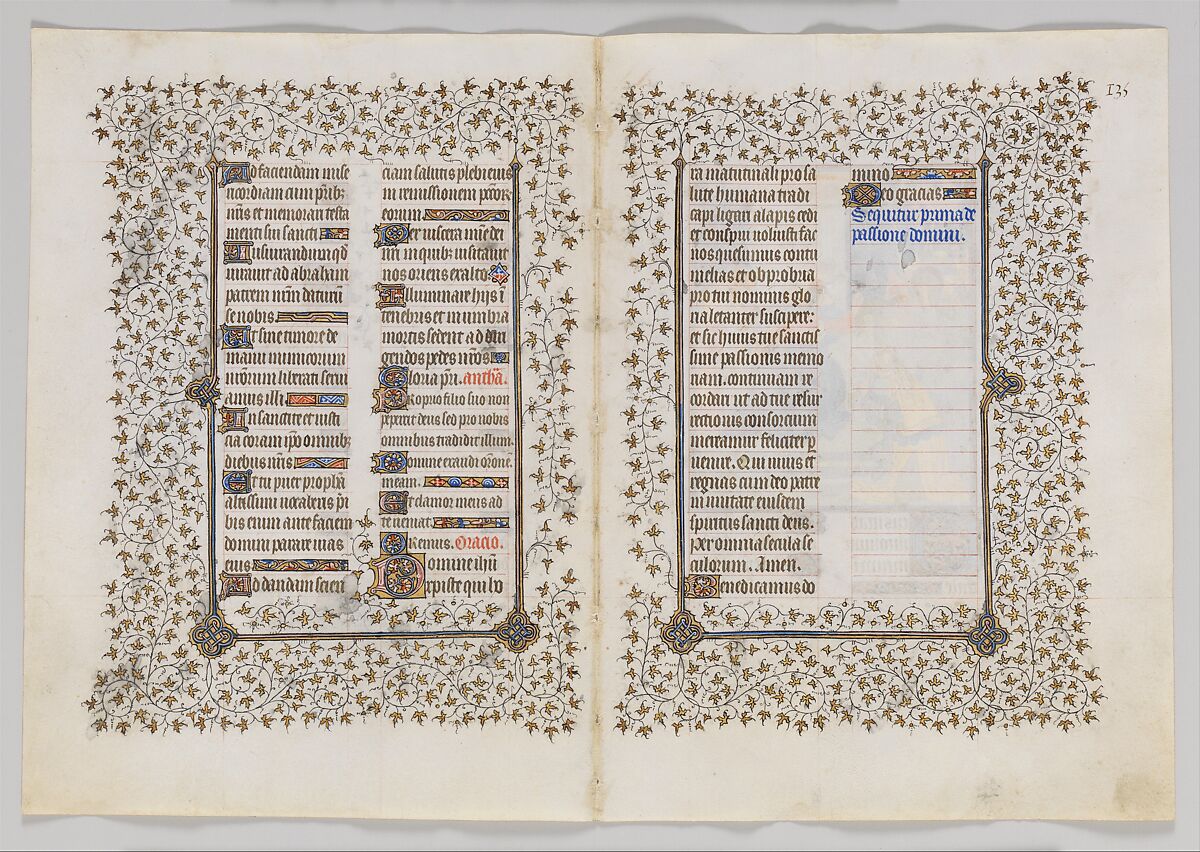 Ad faciendam mise
ricordiam cum prib
nris et memorari testa
menti sui sancti
Jusiurandum qd
iuravit ad abraham
patrem nrm daturu
se nobis
Ut sine timore de
manu inimicorum
nrorum liberati servi
amus illi
In sanctitate et iusti
cia coram ipo omnibz
diebus nris
Et tu puer propha
altissimi vocaberis pi
bis enim ante faciem
domini parare vias
eius
Ad dandam scien
ciam salutis plebi eius
in remissionem pctor
eorum
Per viscera mie dei
nri in quib visitavit
nos oriens ex alto
Illuminare hijs i
tenebris et in umbra
mortis sedent ad diri
gendos pedes nros
Gloria pri. antha.
Proprio filio suo non
pepercit deus sed pro nobis
omnibus tradidit illum.
Domine exaudi oronem
meam.
Et clamor meus ad
te veniat.
Oremus. Oracio.
Domine ihu
xpiste qui ho
135
ra matutinali pro sa
lute humana tradi
capi ligari alapis cedi
et conspui voluisti fac
nos quesumus contu
melias et obprobria
pro tui nominis glo
ria letanter suscipere:
et sic huius tue sancti
sime passionis memo
riam. continuam re
cordari ut ad tue resur
rectionis consorcium
mereamur feliciter p
venire. Qui vivis et
regnas cum deo patre
in unitate eiusdem
spiritus sancti deus.
Per omnia secula se
culorum. Amen.
Benedicamus do
mino
Deo gracias
Sequitur prima de
passione domini.